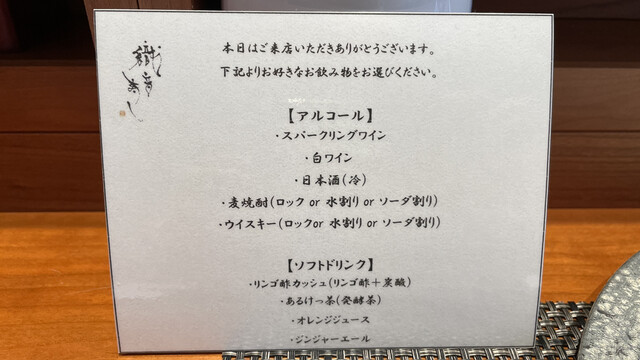 本日はご来店いただきありがとうございます。
下記よりお好きなお飲み物をお選びください。
【アルコール】
・スパークリングワイン
・白ワイン
・日本酒(冷)
・麦焼酎(ロック or 水割り or ソーダ割り)
・ウイスキー(ロックor 水割り or ソーダ割り)
【ソフトドリンク】
・リンゴ酢カッシュ(リンゴ酢＋炭酸)
・あるけっ茶(発酵茶)
・オレンジジュース
・ジンジャーエール